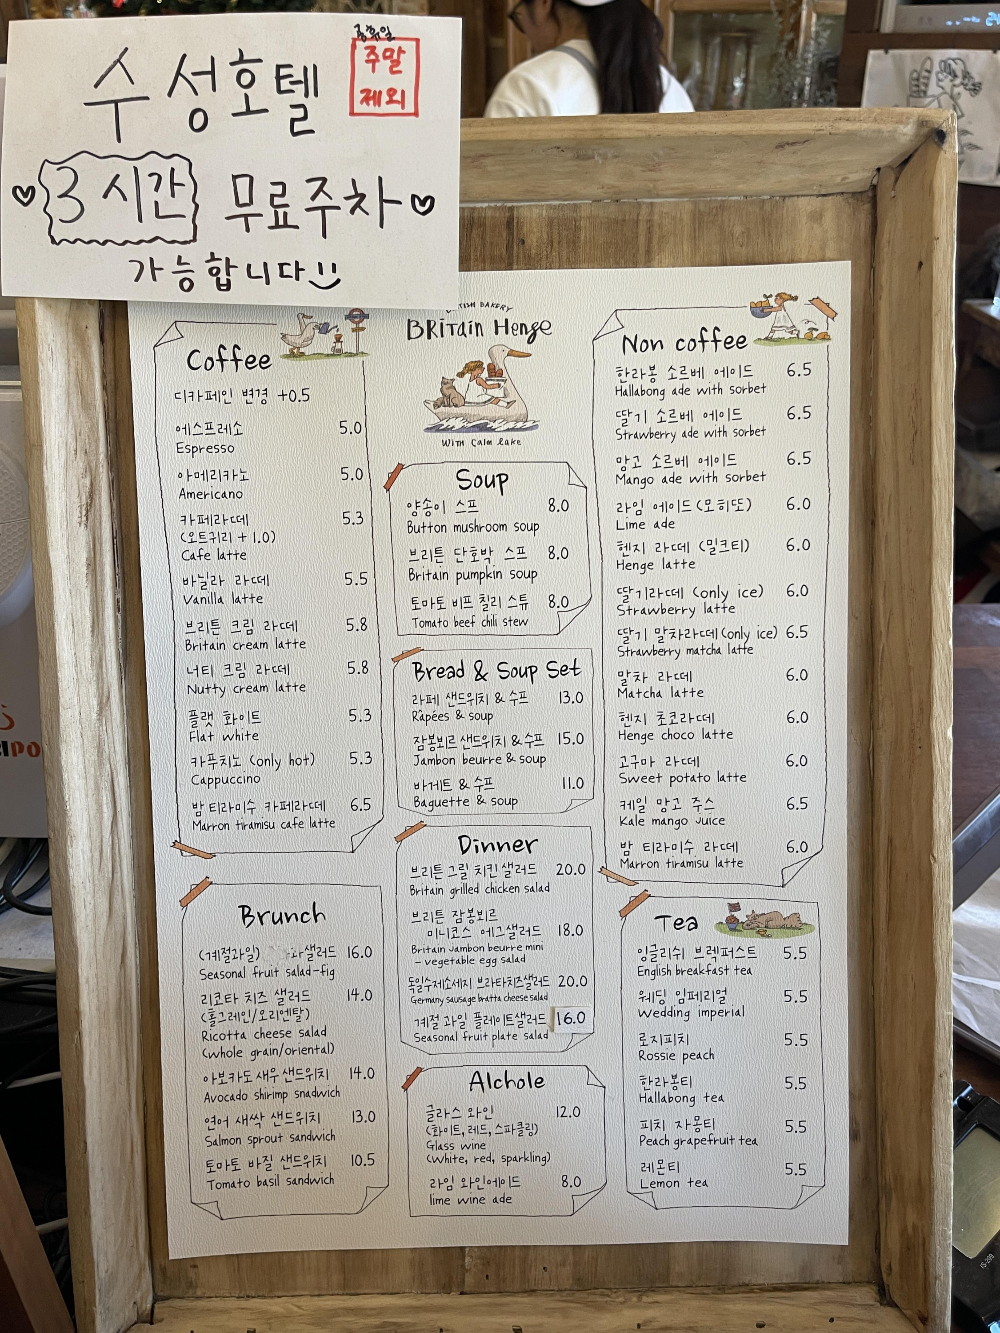 수성호텔
공휴일
주말
제외
3시간 무료주차
가능합니다
BRITISH BAKERY
BRITAIN HENGE
WITH CALM LAKE
Coffee
디카페인 변경 +0.5
에스프레소 5.0
Espresso
아메리카노 5.0
Americano
카페라떼 5.3
(오트귀리 + 1.0)
Cafe latte
바닐라 라떼 5.5
Vanilla latte
브리튼 크림 라떼 5.8
Britain cream latte
너티 크림 라떼 5.8
Nutty cream latte
플랫 화이트 5.3
Flat white
카푸치노 (only hot) 5.3
Cappuccino
밤 티라미수 카페라떼 6.5
Marron tiramisu cafe latte
Brunch
(계절과일) 샐러드 16.0
Seasonal fruit salad-fig
리코타 치즈 샐러드 14.0
(홀그레인/오리엔탈)
Ricotta cheese salad
(whole grain/oriental)
아보카도 새우 샌드위치 14.0
Avocado shirimp snadwich
연어 새싹 샌드위치 13.0
Salmon sprout sandwich
토마토 바질 샌드위치 10.5
Tomato basil sandwich
Soup
양송이 스프 8.0
Button mushroom soup
브리튼 단호박 스프 8.0
Britain pumpkin soup
토마토 비프 칠리 스튜 8.0
Tomato beef chili stew
Bread & Soup Set
라페 샌드위치 & 수프 13.0
Râpées & soup
잠봉뵈르 샌드위치 & 수프 15.0
Jambon beurre & soup
바게트 & 수프 11.0
Baguette & soup
Dinner
브리튼 그릴 치킨 샐러드 20.0
Britain grilled chicken salad
브리튼 잠봉뵈르
미니코스 에그샐러드 18.0
Britain Jambon beurre mini
- vegetable egg salad
독일수제소세지 브라타치즈샐러드 20.0
Germany sausage bratta cheese salad
계절 과일 플레이트샐러드 16.0
Seasonal fruit plate salad
Alchole
글라스 와인 12.0
(화이트, 레드, 스파클링)
Glass wine
(White, red, sparkling)
라임 와인에이드 8.0
lime wine ade
Non coffee
한라봉 소르베 에이드 6.5
Hallabong ade with sorbet
딸기 소르베 에이드 6.5
Strawberry ade with sorbet
망고 소르베 에이드 6.5
Mango ade with sorbet
라임 에이드 (모히또) 6.0
Lime ade
헨지 라떼 (밀크티) 6.0
Henge latte
딸기라떼 (only ice) 6.0
Strawberry latte
딸기 말차라떼 (only ice) 6.5
Strawberry matcha latte
말차 라떼 6.0
Matcha latte
헨지 초코라떼 6.0
Henge choco latte
고구마 라떼 6.0
Sweet potato latte
케일 망고 주스 6.5
Kale mango Juice
밤 티라미수 라떼 6.0
Marron tiramisu latte
Tea
잉글리쉬 브렉퍼스트 5.5
English breakfast tea
웨딩 임페리얼 5.5
Wedding imperial
로지피치 5.5
Rossie peach
한라봉티 5.5
Hallabong tea
피치 자몽티 5.5
Peach grapefruit tea
레몬티 5.5
Lemon tea